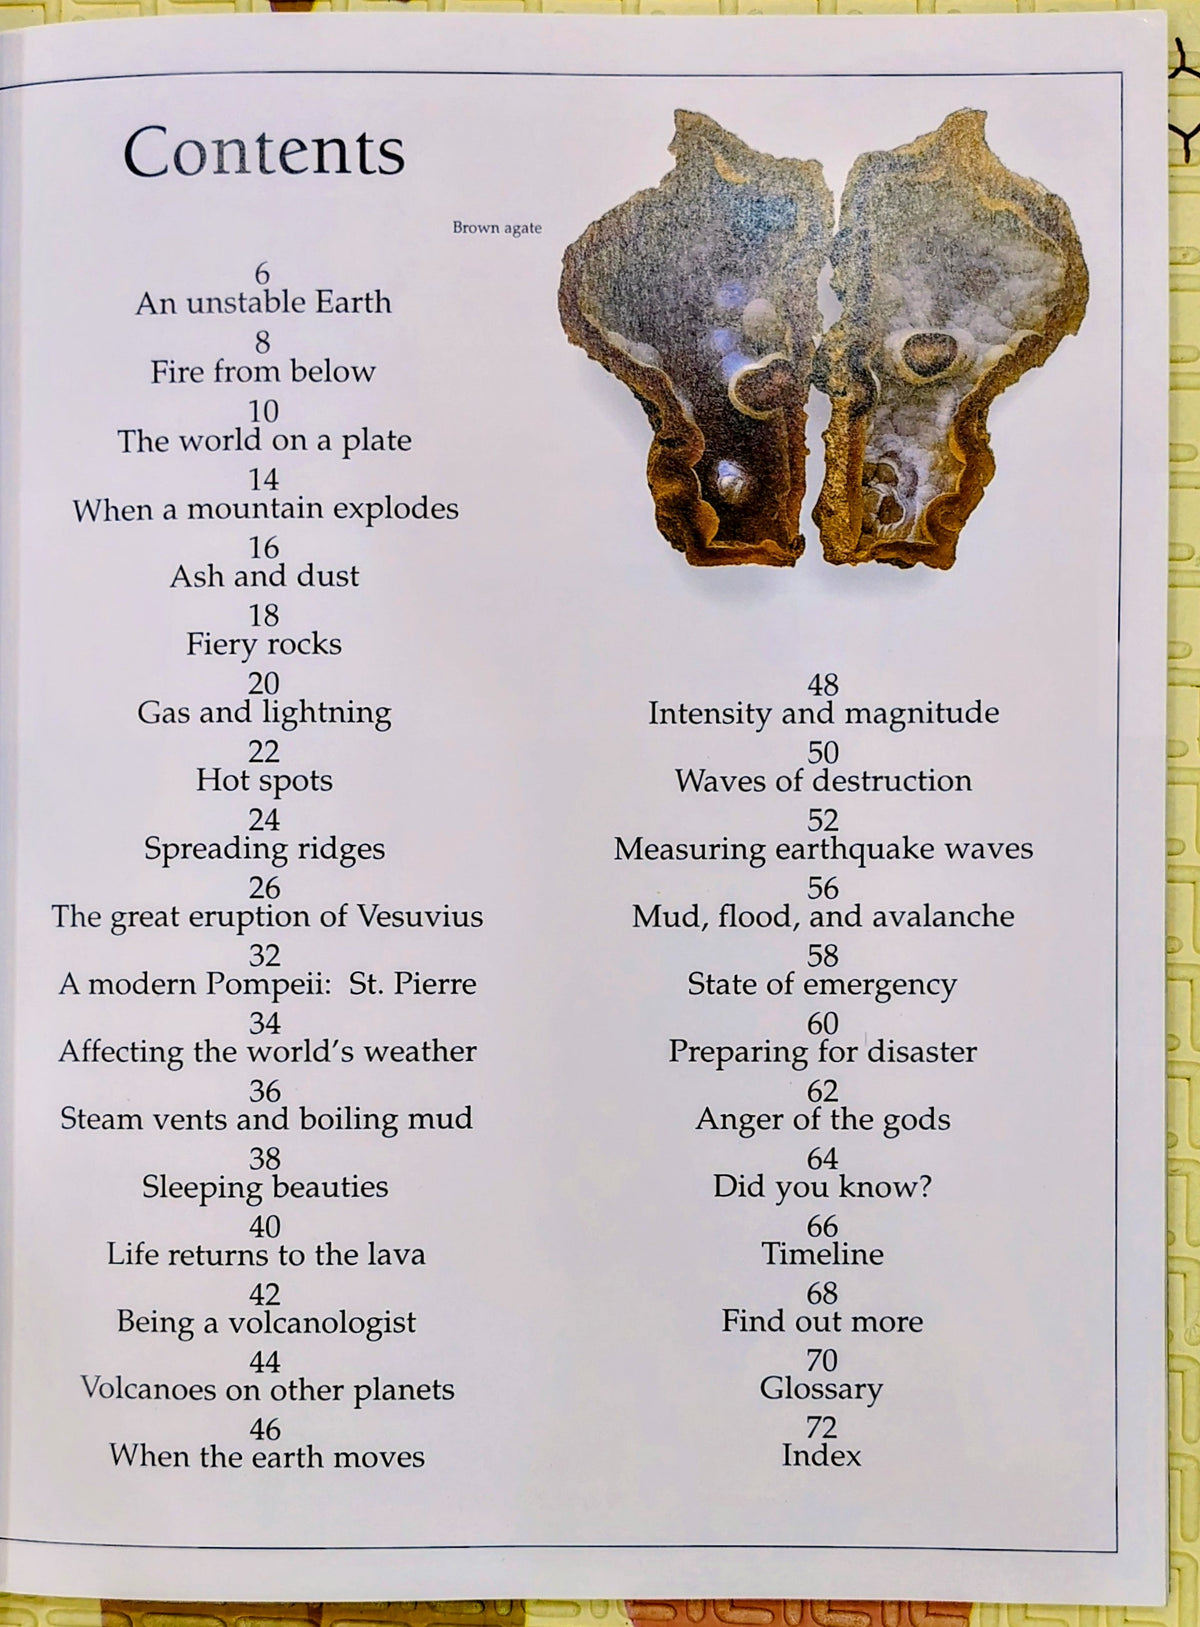 Contents
Brown agate
6
An unstable Earth
8
Fire from below
10
The world on a plate
14
When a mountain explodes
16
Ash and dust
18
Fiery rocks
20
Gas and lightning
22
Hot spots
24
Spreading ridges
26
The great eruption of Vesuvius
32
A modern Pompeii: St. Pierre
34
Affecting the world's weather
36
Steam vents and boiling mud
38
Sleeping beauties
40
Life returns to the lava
42
Being a volcanologist
44
Volcanoes on other planets
46
When the earth moves
48
Intensity and magnitude
50
Waves of destruction
52
Measuring earthquake waves
56
Mud, flood, and avalanche
58
State of emergency
60
Preparing for disaster
62
Anger of the gods
64
Did you know?
66
Timeline
68
Find out more
70
Glossary
72
Index